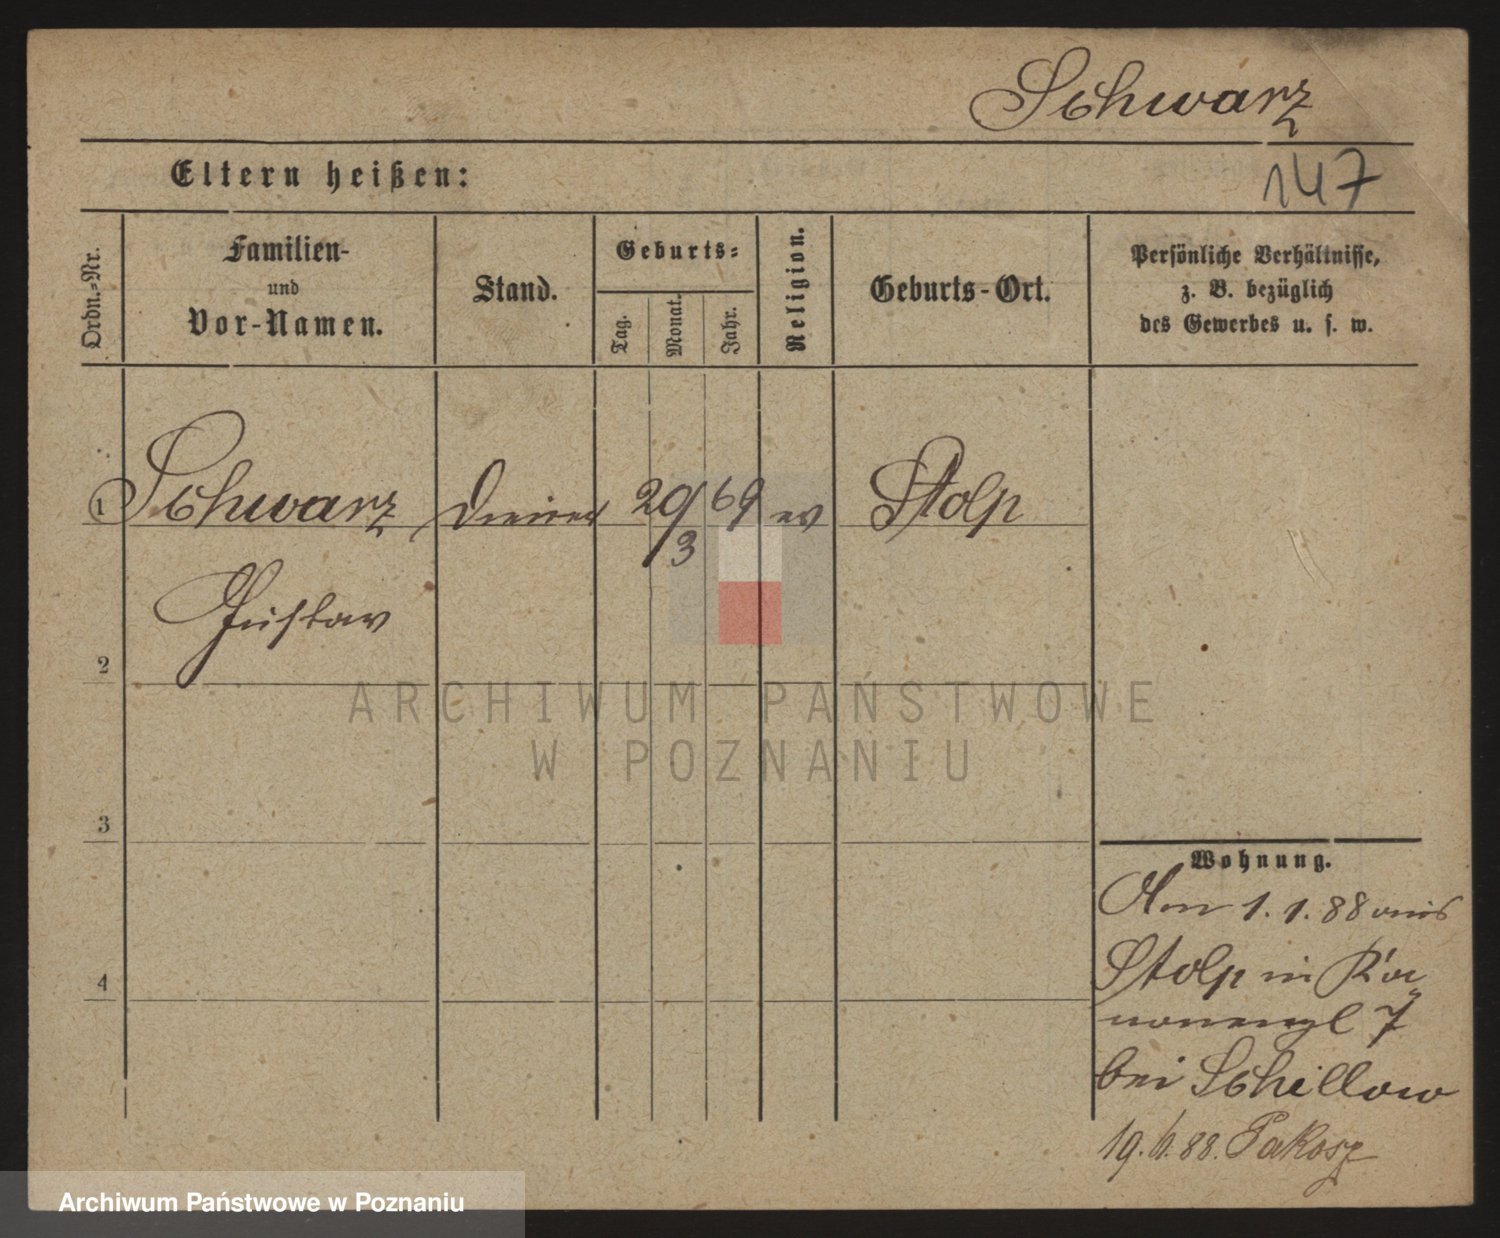 Schwarz
147
Eltern heißen:
Ordn.-Nr.
Familien-
und
Vor-Namen.
Stand.
Geburts-
Tag.
Monat.
Jahr.
Religion.
Geburts-Ort.
Persönliche Verhältnisse,
z. B. bezüglich
des Gewerbes u. s. w.
1 Schwarz Diener 29/3 69 ev Stolp
Gustav
2
3
4
Wohnung.
1. 1. 88 aus
Stolp in
7
bei Schillow
19. 6. 88. Pakosz
ARCHIWUM PAŃSTWOWE
W POZNANIU
Archiwum Państwowe w Poznaniu